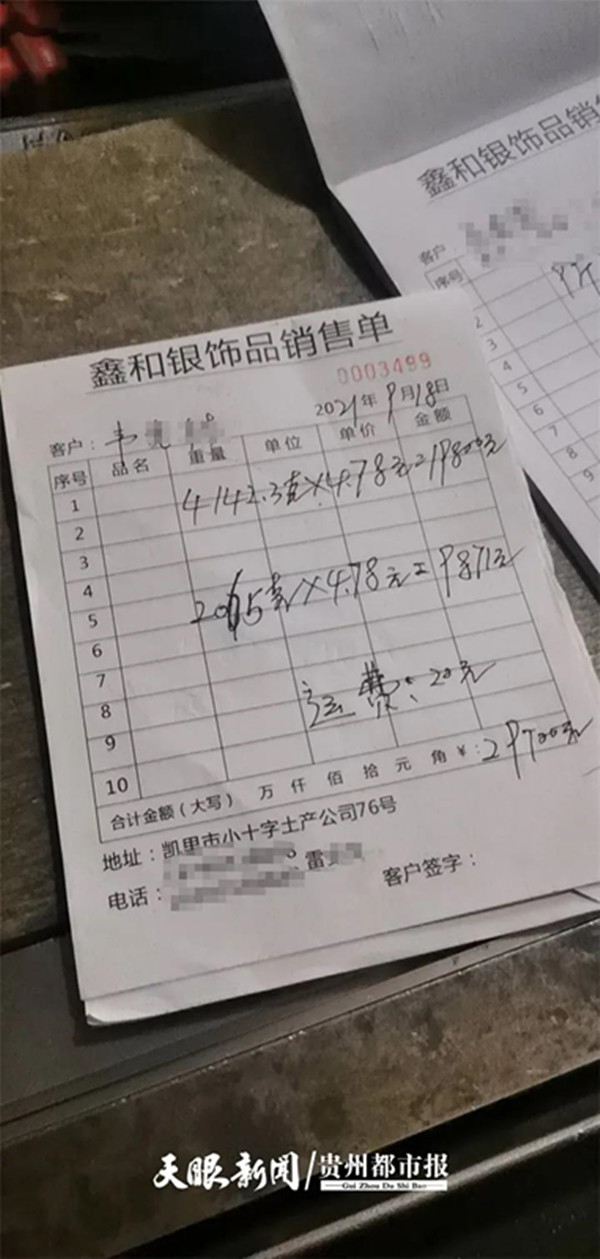 鑫和银饰品销售单
0003499
2021年9月18日
客户：韦
序号 品名 重量 单位 单价 金额
1
4142.3克×4.78元=19800元
2
3
4
2065克×4.78元=9871元
5
6
7
运费：20元
8
9
10
合计金额（大写） 万 仟 佰 拾 元 角 ¥：29700元
地址：凯里市小十字土产公司76号
电话： 雷
客户签字：
鑫和银饰品销
客户
序号
2
3
4
5
6
7
8
9
天眼新闻/贵州都市报
Gui Zhou Du Shi Bao